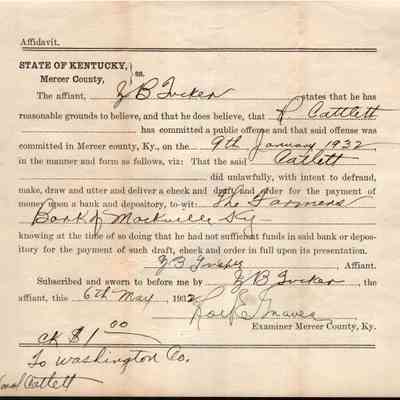 Affidavit.
STATE OF KENTUCKY,
Mercer County, } ss.
The affiant, B Tucker states that he has
reasonable grounds to believe, and that he does believe, that R Cattlett
has committed a public offense and that said offense was
committed in Mercer county, Ky., on the 9th January 1932,
in the manner and form as follows, viz: That the said Catlett
did unlawfully, with intent to defraud,
make, draw and utter and deliver a check and draft and order for the payment of
money upon a bank and depository, to-wit: The Farmers
Bank of Mackville Ky
knowing at the time of so doing that he had not sufficient funds in said bank or depos-
itory for the payment of such draft, check and order in full upon its presentation.
B Tucker, Affiant.
Subscribed and sworn to before me by B Tucker, the
affiant, this 6th May, 1932
Graves
Examiner Mercer County, Ky.
ck $1 00
To Washington Co.
Catlett